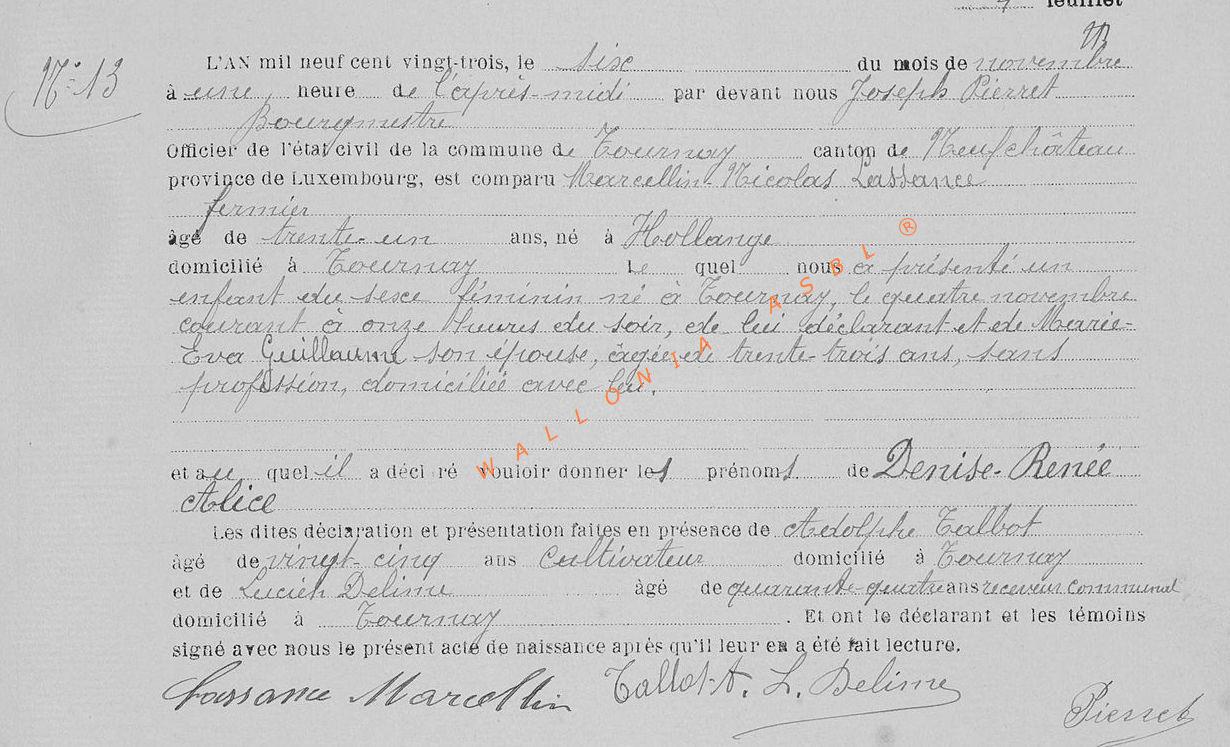 7 feuillet
N° 13
L'AN mil neuf cent vingt-trois, le six du mois de novembre
à une heure de l'après-midi par devant nous Joseph Pierret
Bourgmestre
Officier de l'état civil de la commune de Tournay canton de Neufchâteau
province de Luxembourg, est comparu Marcellin-Nicolas Lassance
fermier
âgé de trente-un ans, né à Hollange
domicilié à Tournay Le quel nous a présenté un
enfant du sexe féminin né à Tournay, le quatre novembre
courant à onze heures du soir, de lui déclarant et de Marie-
Eva Guillaume son épouse, âgée de trente-trois ans, sans
profession, domiciliée avec lui.
et au quel il a déclaré vouloir donner les prénoms de Denise-Renée
Alice
Les dites déclaration et présentation faites en présence de Adolphe Talbot
âgé de vingt-cinq ans Cultivateur domicilié à Tournay
et de Lucien Delime âgé de quarante-quatre ans receveur communal
domicilié à Tournay . Et ont le déclarant et les témoins
signé avec nous le présent acte de naissance après qu'il leur en a été fait lecture.
Lassance Marcellin Talbot A. L. Delime
Pierret
WALLONIA ASBL ®